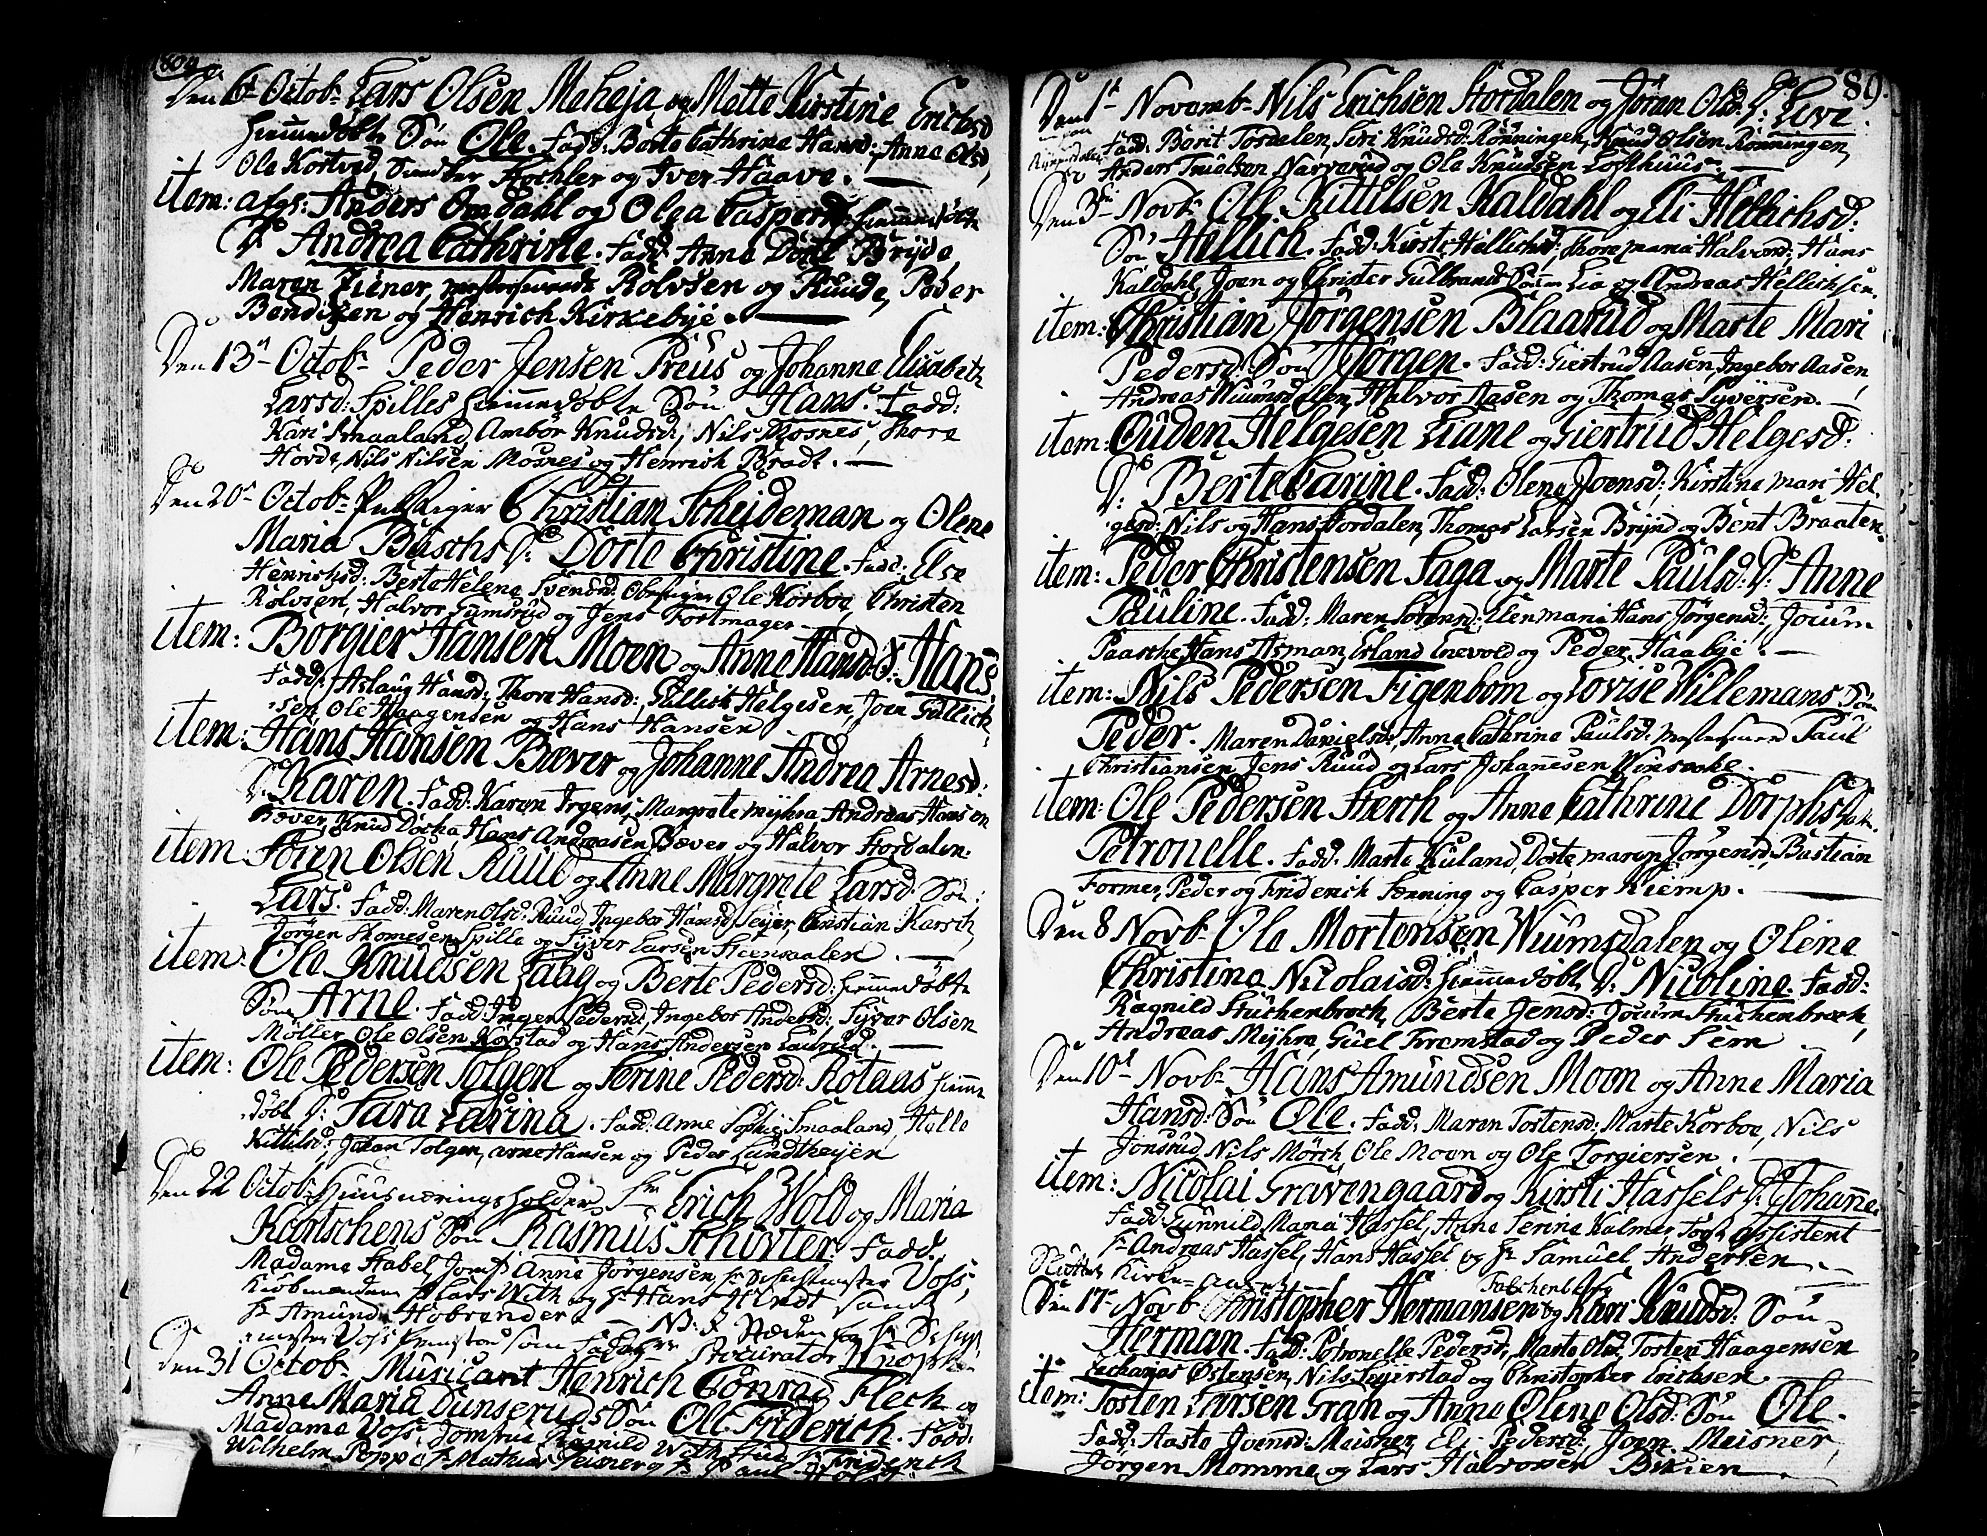 1804
Den 6t Octobr Lars Olsen Meheja og Mette Kirstine Erichsd
hiemmedøbte Søn Ole. Fadd: Berte Cathrine Hansd: Anne Olsd,
Ole Kortved, Kochler og Iver Haave.
item: afgs: Anders Omdahl og Olea Caspersd hiemmedøbte
Dr Andrea Cathrine. Fadd: Anne Dortl Bryde,
Maren Ziener, Rolvsen og Ruude, Peder
Bendixen og Henrich Kirkebye.
Den 13n Octobr Peder Jensen Preus og Johanne Elisabeth
Larsd: Spilles hiemmedøbte Søn Hans. Fadd:
Kari Smaaland, Ambor Knudsd, Nils Mosnes, Thore
Horde, Nils Nilsen Mosnes og Henrich Bradt.
Den 20e Octobr Christian Scheideman og Olene
Maria Buschs Dr Dorte Christine. Fadd: Else
Henrichsd: Berte Helene Svendsd: Ole Korboe, Christen
Rolvsen, Halvor Gumsrud og Jens Fortmager
item: Borgier Hansen Moen og Anne Hansd: S: Hans.
Fadd: Aslaug Hansd; Thore Hansd: Gullich Helgesen, Joen Gullich-
sen Ole Haagensen og Hans Hansen
item: Hans Hansen Bæver og Johanne Andrea Arnesd:
D: Karen. Fadd: Karen Irgens, Margrete Myhra, Andreas Hansen
Bæver, Knud Docka, Hans Andreasen Bæver og Halvor Stordalen.
item: Søren Olsen Ruud og Anne Margrete Larsd: Søn:
Lars. Fadd: Maren Olsd: Ruud, Ingebor Hansd, Seyer, Christian Karsch,
Jørgen Thomesen Spille og Syver Larsen Steensaalen.
item: Ole Knudsen Zaag og Berte Pedersd: hiemmedøbte
Søn Arne. Fadd: Inger Pedersd; Ingebor Andersd: Syver Olsen
Møller, Ole Olsen Kofstad og Hans Andersen Laurud.
item: Ole Pedersen Tolgen og Serine Pedersd: Rotaas hiemme
døbt D: Sara Larina. Fadd: Anne Sophie Smaaland, Helle
Kittilsd; Johan Tolgen, Arne Hansen og Peder Lundtheyen
Den 22 Octobr Huusnæringsholder Hr Erich Wold og Maria
Kortschens Søn Rasmus Schivter Fadd:
Madame Habel, Jomfr Anne Jørgensen, Hr Voss,
Kiøbmændene Lars With og Hr Hans Hindt samt
Hr Amund Hobrender.
Den 31 Octobr Musicant Henrich Conrad Flech og
Anne Maria Dunseruds Søn Ole Friderich. Fadd:
Madame Voss Jomfrue Ragnild With
Wilhelm Poppe, Hr Mathias Leisner og Hr Paul
89.
Den 1t Novembr Nils Erichsen Stordalen og Jøran Olsd D: Live.
Fadd: Borit Tordalen, Siri Knudsd: Rønningen, Knud Olsen Rønningen,
Anders Truelsen Narverud og Ole Knudsen Lofthuus.
Den 3die Novbr Ole Kittilsen Kaldahl og Eli Hellichsd:
Søn Hellich. Fadd: Kirsti Hellichsd: Thore Maria Halvorsd: Hans
Kaldahl, Joen og Christer Gulbrands Lia og Andreas Hellichsen.
item: Christian Jørgensen Blaarud og Marte Mari
Pedersd: Søn Jørgen. Fadd: Giertrud Aasen, Ingebor Aasen
Andreas Wiumsdalen, Halvor Aasen og Thomas Syversen.
item: Ouden Helgesen Liane og Giertrud Helgesd:
Dr Berte Carine. Fadd: Olene Joensd: Kirstine Mari Hel-
gesd: Nils og Hans Stordalen, Thomas Larsen Brynd og Bent Braaten.
item: Peder Christensen Saga og Marte Paulsd: D: Anne
Pauline. Fadd: Maren Sørensd: Ellen Maria Hans Jørgensd; Joeum
Paasche Hans Asman, Erland Enevold og Peder Haabye.
item: Nils Pedersen Figenbom og Lovise Willemans Søn
Peder. Maren Danielsd: Anne Cathrine Paulsd: Paul
Christiansen Jens Ruud og Lars Johannesen Winsvoke.
item: Ole Pedersen Stærch og Anne Cathrine Dorphs
Petronelle. Fadd: Marte Ruland, Dorte Maren Jørgensd; Bastian
Former, Peder og Friderich Lønning og Casper Kiemp.
Den 8 Novbr Ole Mortensen Wiumsdalen og Olene
Christina Nicolaisd: hiemmedøbt D: Nicoline. Fadd:
Ragnild Stuchenbroch, Berte Jensd: Joeum Stuchenbroch,
Andreas Myhre, Guel Fremstad og Peder Sem
Den 10t Novbr Hans Amundsen Moen og Anne Maria
Hansd: Søn Ole. Fadd: Maren Tostensd: Marte Korboe, Nils
Jonsrud, Nils Mørch Ole Moen og Ole Torgiersen.
item: Nicolai Gravengaard og Kirsti Hassels D: Johanne.
Fadd: Gunnild Maria Hassel, Anne Serine Kalmer, Fogt Assistent
Hr Andreas Hassel, Hans Hassel og Hr Samuel Andersen
Den 17e Novbr Christopher Hermansen Falchenberg og Kari Knudsd: Søn
Herman. Fadd: Petronelle Pedersd, Marte Olsd. Tosten Haagensen
Zacharias Østensen, Nils Løyerstad og Christopher Erichsen.
item: Tosten Larsen Gram og Anne Olene Olsd: Søn Ole.
Fadd: Aaste Joensd: Meisner, Eli Pedersd; Joen Meisner,
Jørgen Momme og Lars Halvorsen Bikien